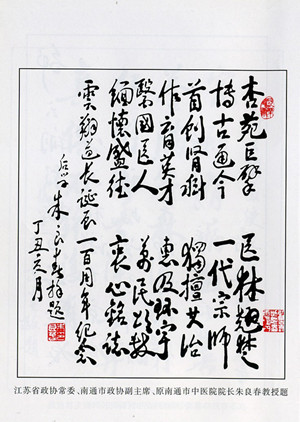 杏苑巨擘 医林翘楚
博古通今 一代宗师
首创肾 獨擅其治
作育英才 惠及环宇
醫國医人 万民
缅怀盛德 衷心铭誌
雲翔道长诞辰一百周年纪念
后学朱良春拜题
丁丑亥月
江苏省政协常委、南通市政协副主席、原南通市中医院院长朱良春教授题